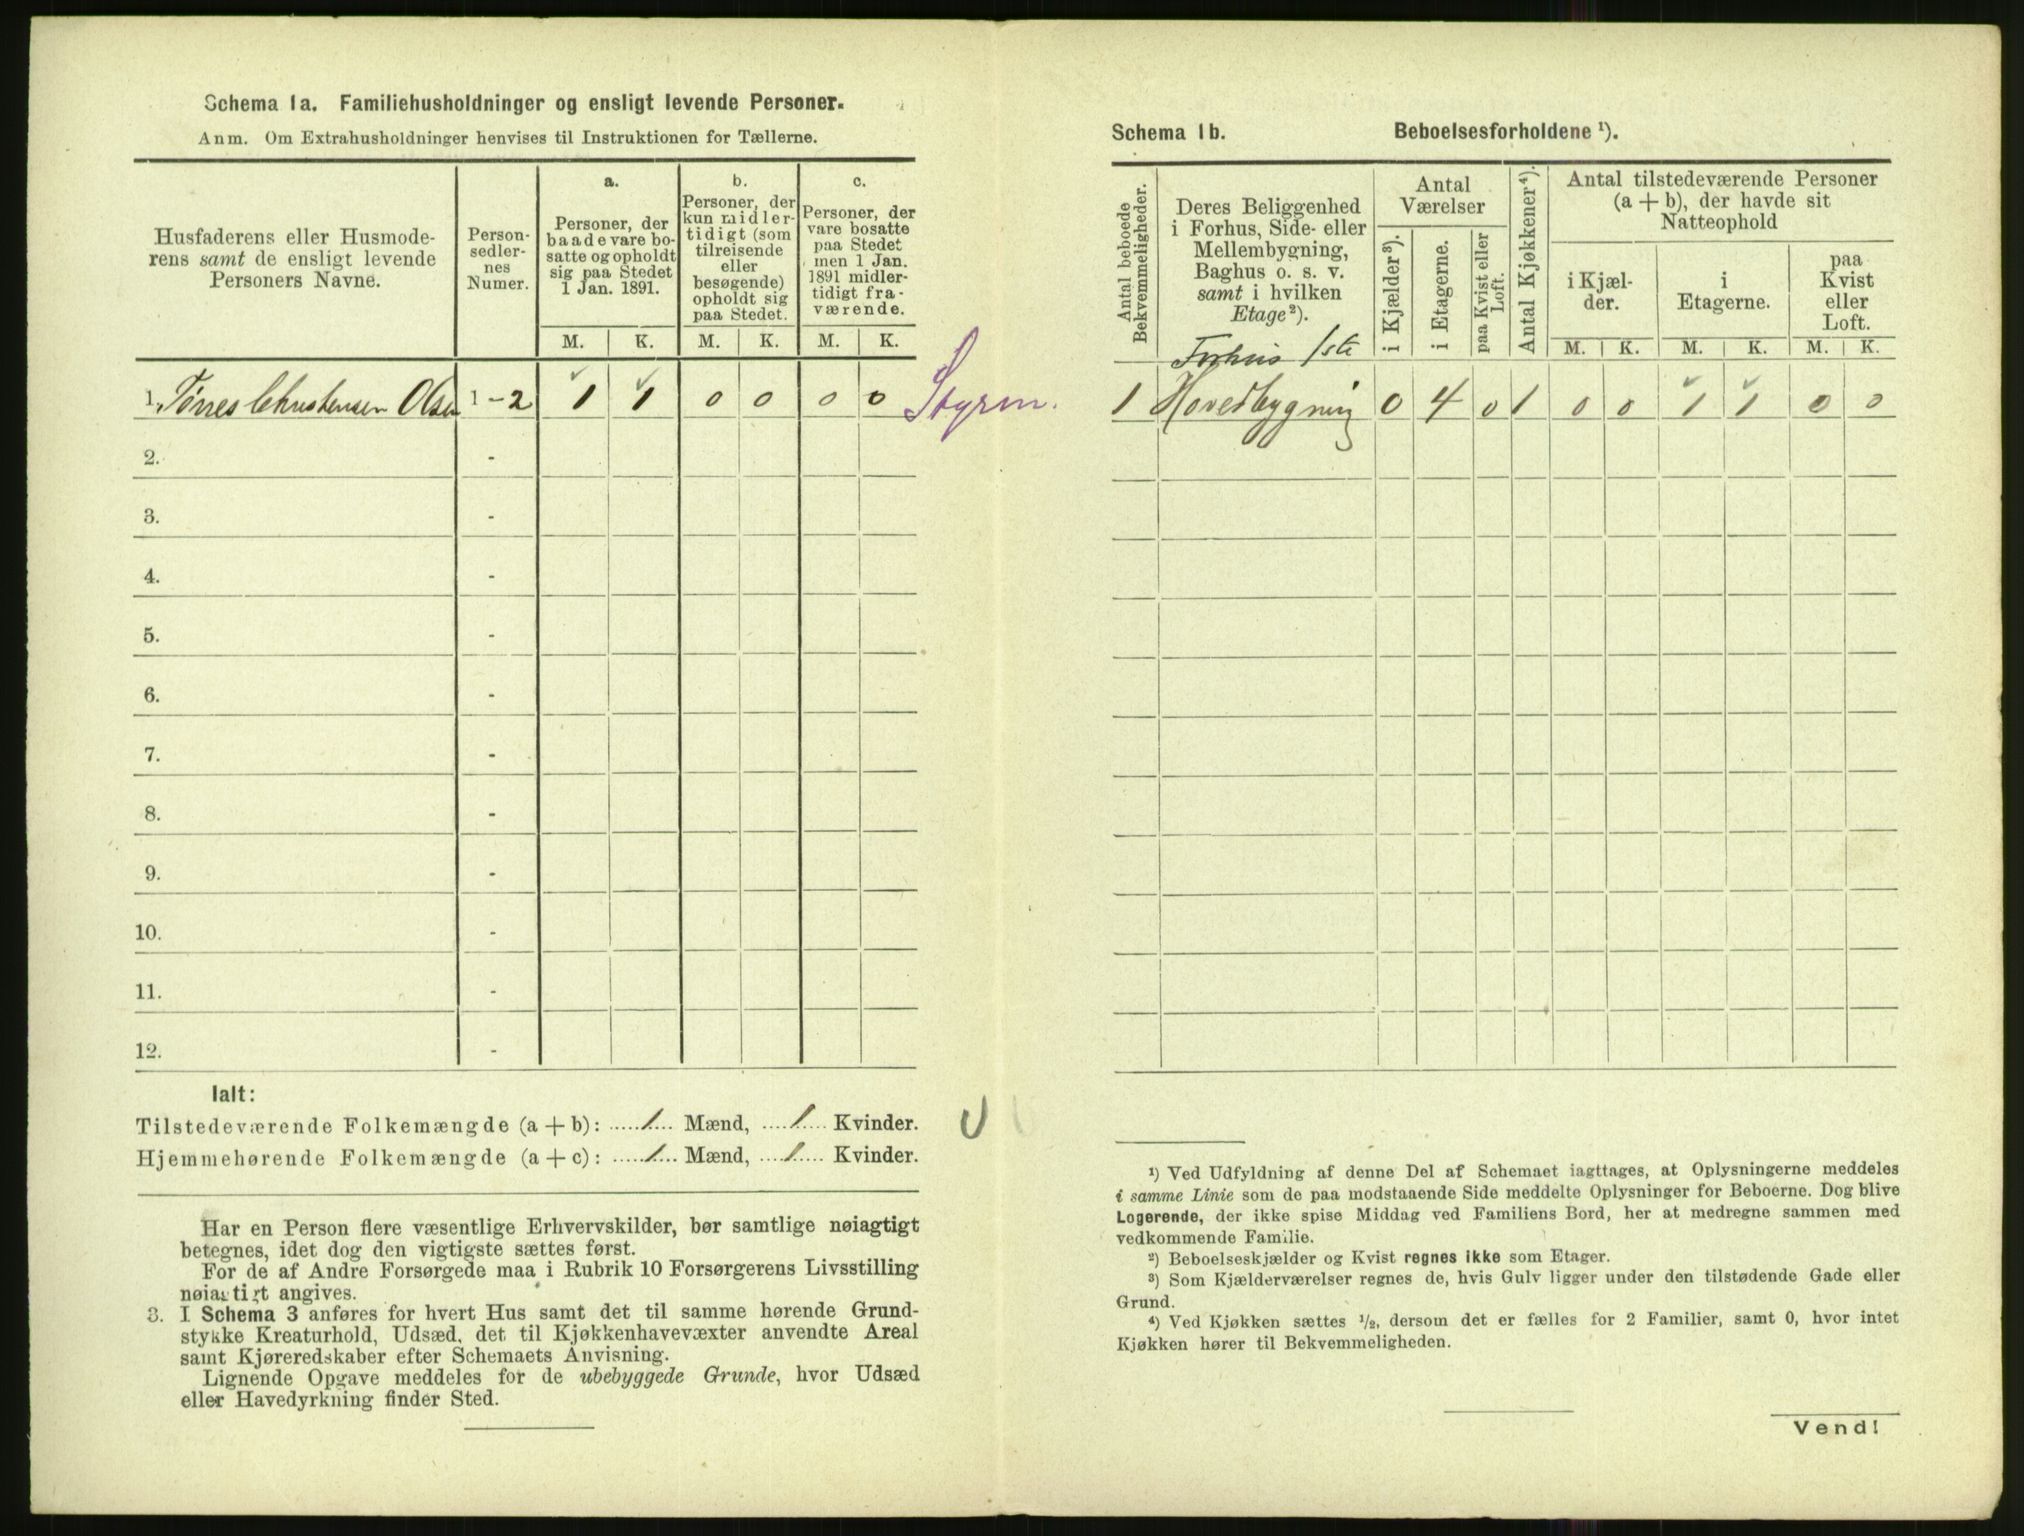 Schema 1a. Familiehusholdninger og ensligt levende Personer.
Anm. Om Extrahusholdninger henvises til Instruktionen for Tællerne.
Husfaderens eller Husmode-
rens samt de ensligt levende
Personers Navne.
Person-
sedler-
nes
Numer.
a.
Personer, der
baade vare bo-
satte og opholdt
sig paa Stedet
1 Jan. 1891.
b.
Personer, der
kun midler-
tidigt (som
tilreisende
eller
besøgende)
opholdt sig
paa Stedet.
c.
Personer, der
vare bosatte
paa Stedet
men 1 Jan.
1891 midler-
tidigt fra-
værende.
M. K. M. K. M. K.
1. Tørres Christensen Olsen 1-2 1 1 0 0 0 0 Styrm.
2. -
3. -
4. -
5. -
6. -
7. -
8. -
9. -
10. -
11. -
12. -
Ialt:
Tilstedeværende Folkemængde (a + b): 1 Mænd, 1 Kvinder.
Hjemmehørende Folkemængde (a + c): 1 Mænd, 1 Kvinder.
Har en Person flere væsentlige Erhvervskilder, bør samtlige nøiagtigt
betegnes, idet dog den vigtigste sættes først.
For de af Andre Forsørgede maa i Rubrik 10 Forsørgerens Livsstilling
nøiagtigt angives.
3. I Schema 3 anføres for hvert Hus samt det til samme hørende Grund-
stykke Kreaturhold, Udsæd, det til Kjøkkenhavevæxter anvendte Areal
samt Kjøreredskaber efter Schemaets Anvisning.
Lignende Opgave meddeles for de ubebyggede Grunde, hvor Udsæd
eller Havedyrkning finder Sted.
Schema 1b. Beboelsesforholdene ¹).
Antal beboede
Bekvemmeligheder.
Deres Beliggenhed
i Forhus, Side- eller
Mellembygning,
Baghus o. s. v.
samt i hvilken
Etage²).
Antal
Værelser
i Kjælder³).
i Etagerne.
paa Kvist eller
Loft.
Antal Kjøkkener⁴).
Antal tilstedeværende Personer
(a + b), der havde sit
Natteophold
i Kjæl-
der.
i
Etagerne.
paa
Kvist
eller
Loft.
M. K. M. K. M. K.
Forhus 1ste
1 Hovedbygning 0 4 0 1 0 0 1 1 0 0
¹) Ved Udfyldning af denne Del af Schemaet iagttages, at Oplysningerne meddeles
i samme Linie som de paa modstaaende Side meddelte Oplysninger for Beboerne. Dog blive
Logerende, der ikke spise Middag ved Familiens Bord, her at medregne sammen med
vedkommende Familie.
²) Beboelseskjælder og Kvist regnes ikke som Etager.
³) Som Kjælderværelser regnes de, hvis Gulv ligger under den tilstødende Gade eller
Grund.
⁴) Ved Kjøkken sættes ½, dersom det er fælles for 2 Familier, samt 0, hvor intet
Kjøkken hører til Bekvemmeligheden.
Vend!